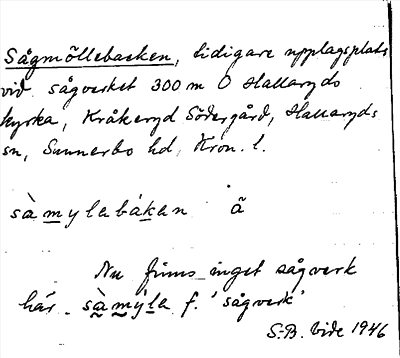 Sågmöllebacken, tidigare upplagsplats
vid sågverket 300 m O Hallaryds
kyrka, Kråkeryd Södergård, Hallaryds
sn, Sunnerbo hd, Kron. l.
sàmylabákan ã
Nu finns inget sågverk
här. sàmýla f. 'sågverk'
S.-B. Vide 1946